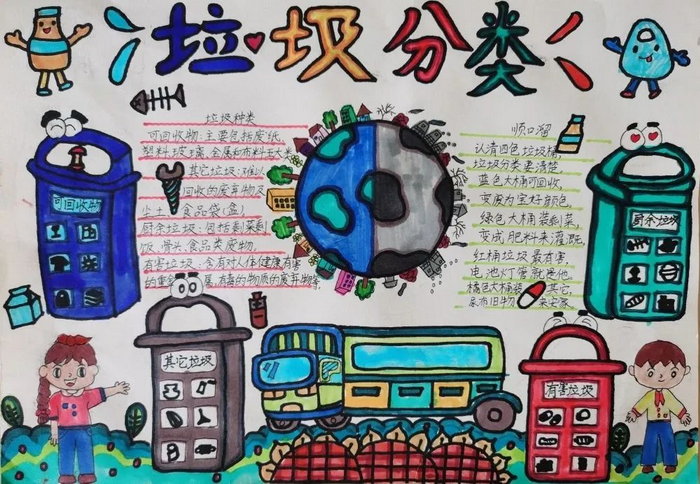 垃圾分类
垃圾种类
可回收物:主要包括废纸,
塑料,玻璃,金属和布料五大类
其它垃圾:难以
回收的废弃物及
尘土、食品袋(盒)
厨余垃圾:包括剩菜剩
饭、骨头,食品类废物,
有害垃圾:含有对人体健康有害
的重金属,有毒的物质的废弃物等
顺口溜
认清四色垃圾桶,
垃圾分类要清楚,
蓝色大桶可回收,
变废为宝好颜色,
绿色大桶装剩菜
变成肥料来灌溉
红桶垃圾最有害
电池灯管就是他,
橘色大桶装其它,
尿布旧物来安家
可回收物
厨余垃圾
其它垃圾
有害垃圾